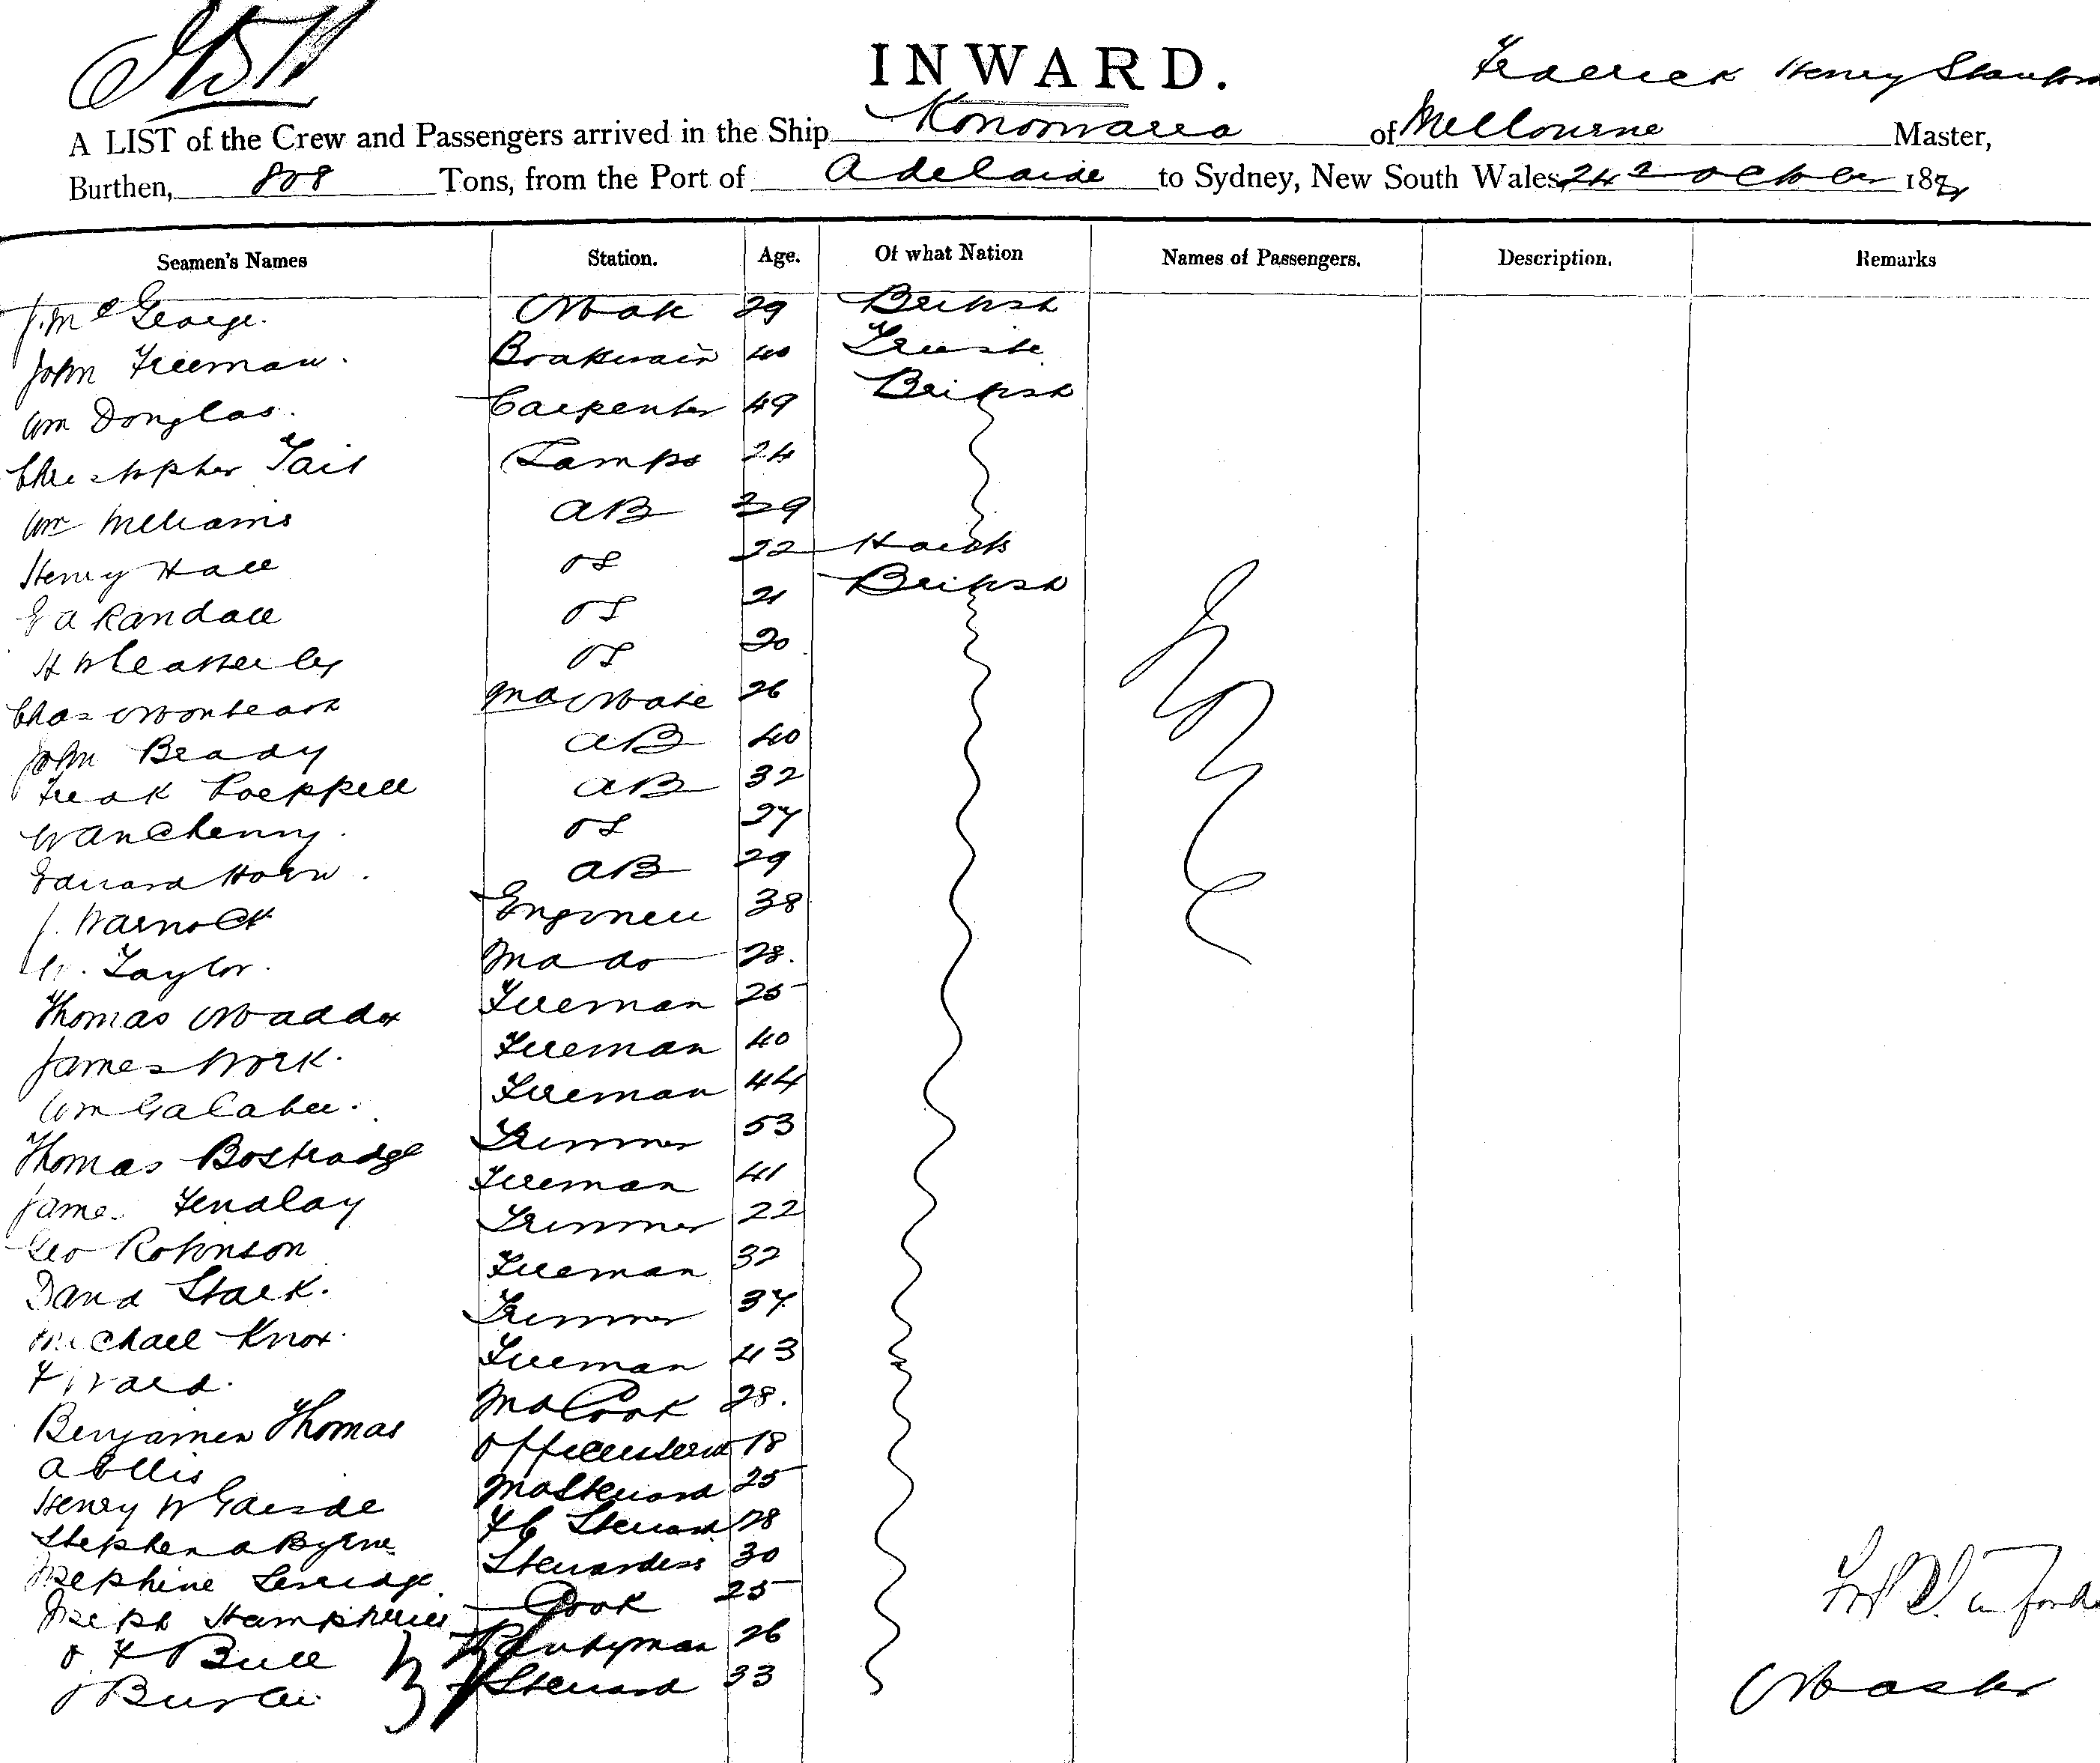 INWARD.
Frederick Henry Stanford
A LIST of the Crew and Passengers arrived in the Ship Konoowarra of Melbourne Master,
Burthen, 808 Tons, from the Port of Adelaide to Sydney, New South Wales 24 October 18
Seamen's Names Station. Age. Of what Nation Names of Passengers. Description. Remarks
J. McGeorge. Mate 29 British
John Freeman. Boatswain 40 Trieste
Wm Douglas. Carpenter 49 British
Christopher Tait Lamps 24
Wm Williams AB 29
Henry Hall OS 22
G A Randall OS 21 British
H Weatherley OS 20
Chas 2nd Mate 26
John Brady AB 40
Fredk Poeppell AB 32
OS 27
Edward Horn. AB 29
J. Warnock Engineer 38
W. Taylor. 2nd do 28.
Thomas Maddox Fireman 25
James Work. Fireman 40
Wm Fireman 44
Thomas Bostradge Trimmer 53
James Findlay Fireman 41
Geo Robinson Trimmer 22
David Stark. Fireman 32
Michael Knox. Trimmer 37
F Ward. Fireman 43
Benjamin Thomas 2nd Cook 28.
A Ellis 18
Henry W Garside 2nd Steward 25
Stephen A Byrne F C Steward 28
Josephine Stewardess 30
Joseph Humphries Cook 25
O F Bull Pantryman 26
Steward 33
Master